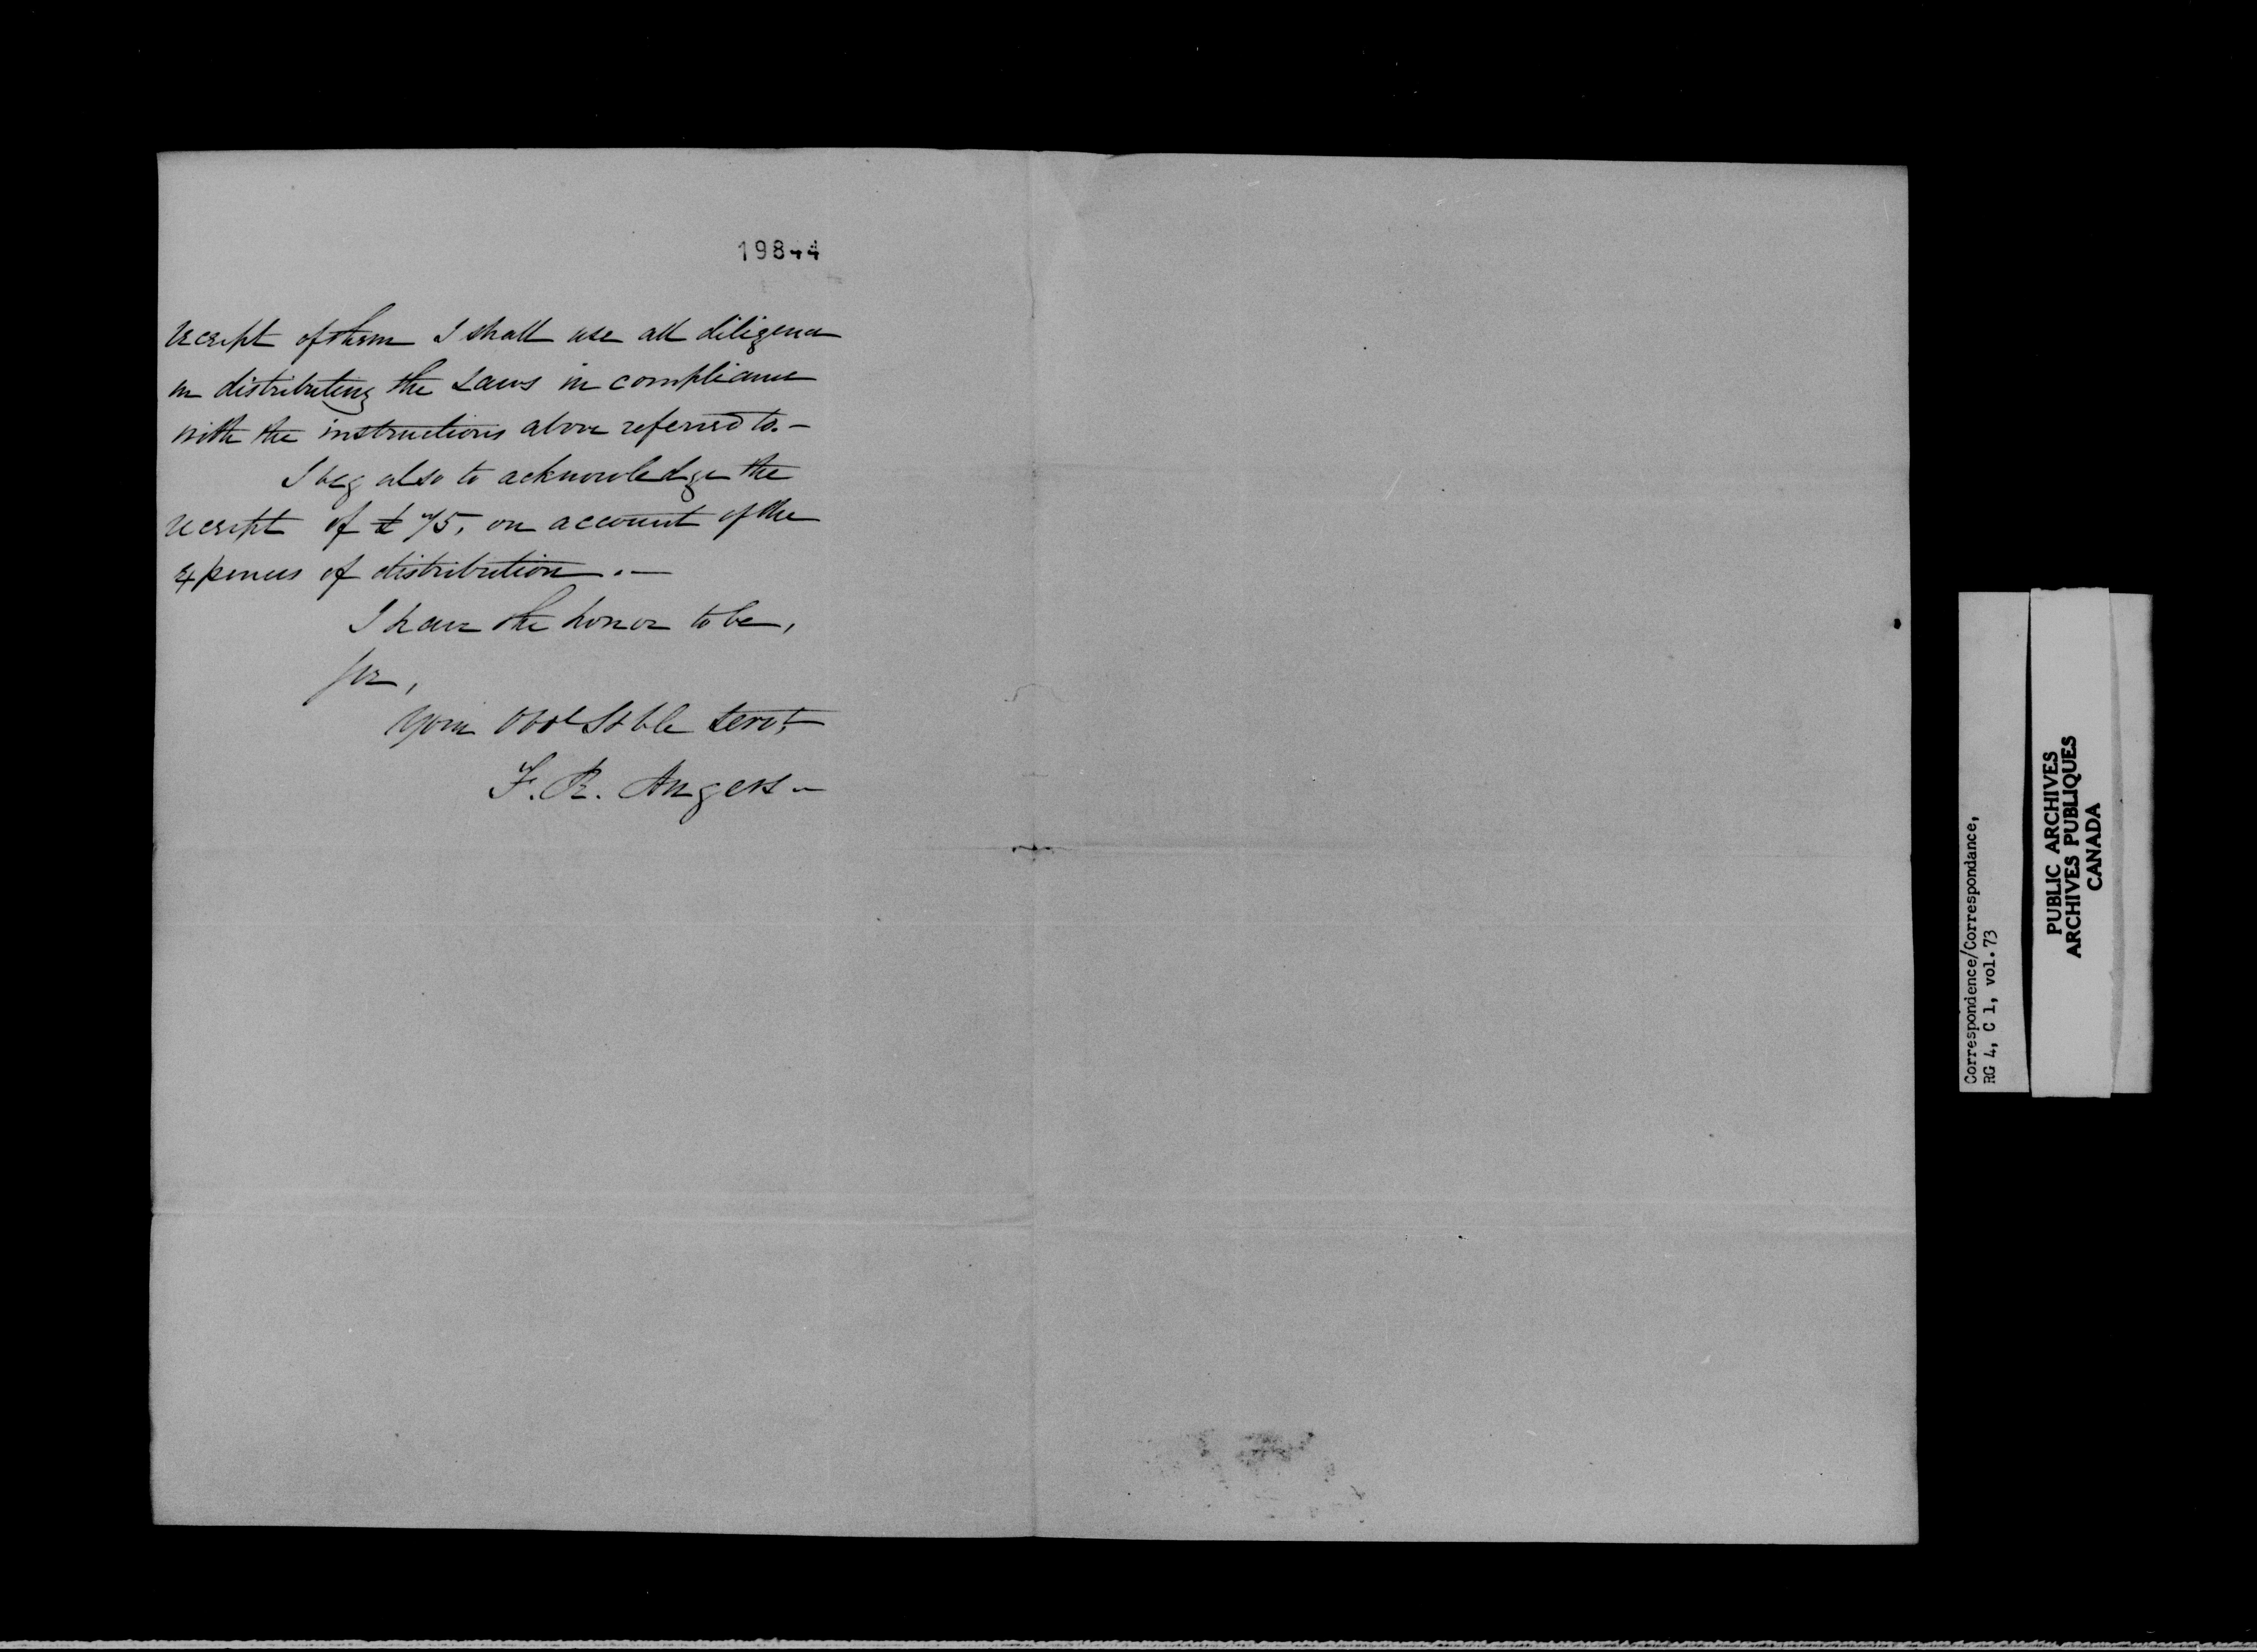 19844
receipt of them I shall use all diligence
in distributing the Laws in compliance
with the instructions above referred to.-
I beg also to acknowledge the
receipt of £75, on account of the
expences of distribution.-
I have the honor to be,
Sir,
Your Obdt Hble Servt
F. R. Angers-
Correspondence/Correspondance,
RG 4, C 1, vol.73
PUBLIC ARCHIVES
ARCHIVES PUBLIQUES
CANADA